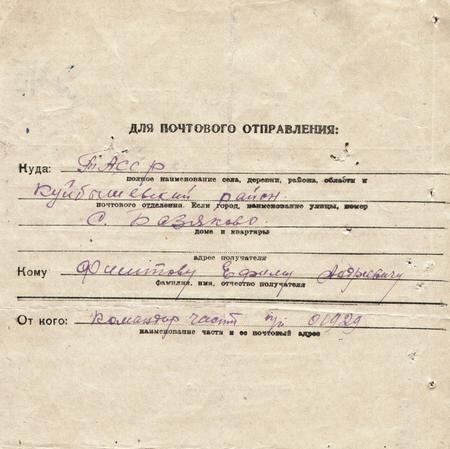 ДЛЯ ПОЧТОВОГО ОТПРАВЛЕНИЯ:
Куда: ТАССР
полное наименование села, деревни, района, области и
Куйбышевский район.
почтового отделения. Если город, наименование улицы, номер
С. Базяково
дома и квартиры
адрес получателя
Кому Филиппову Ефиму Андреевичу
фамилия, имя, отчество получателя
От кого: Командир части п/п 01929
наименование части и ее почтовый адрес